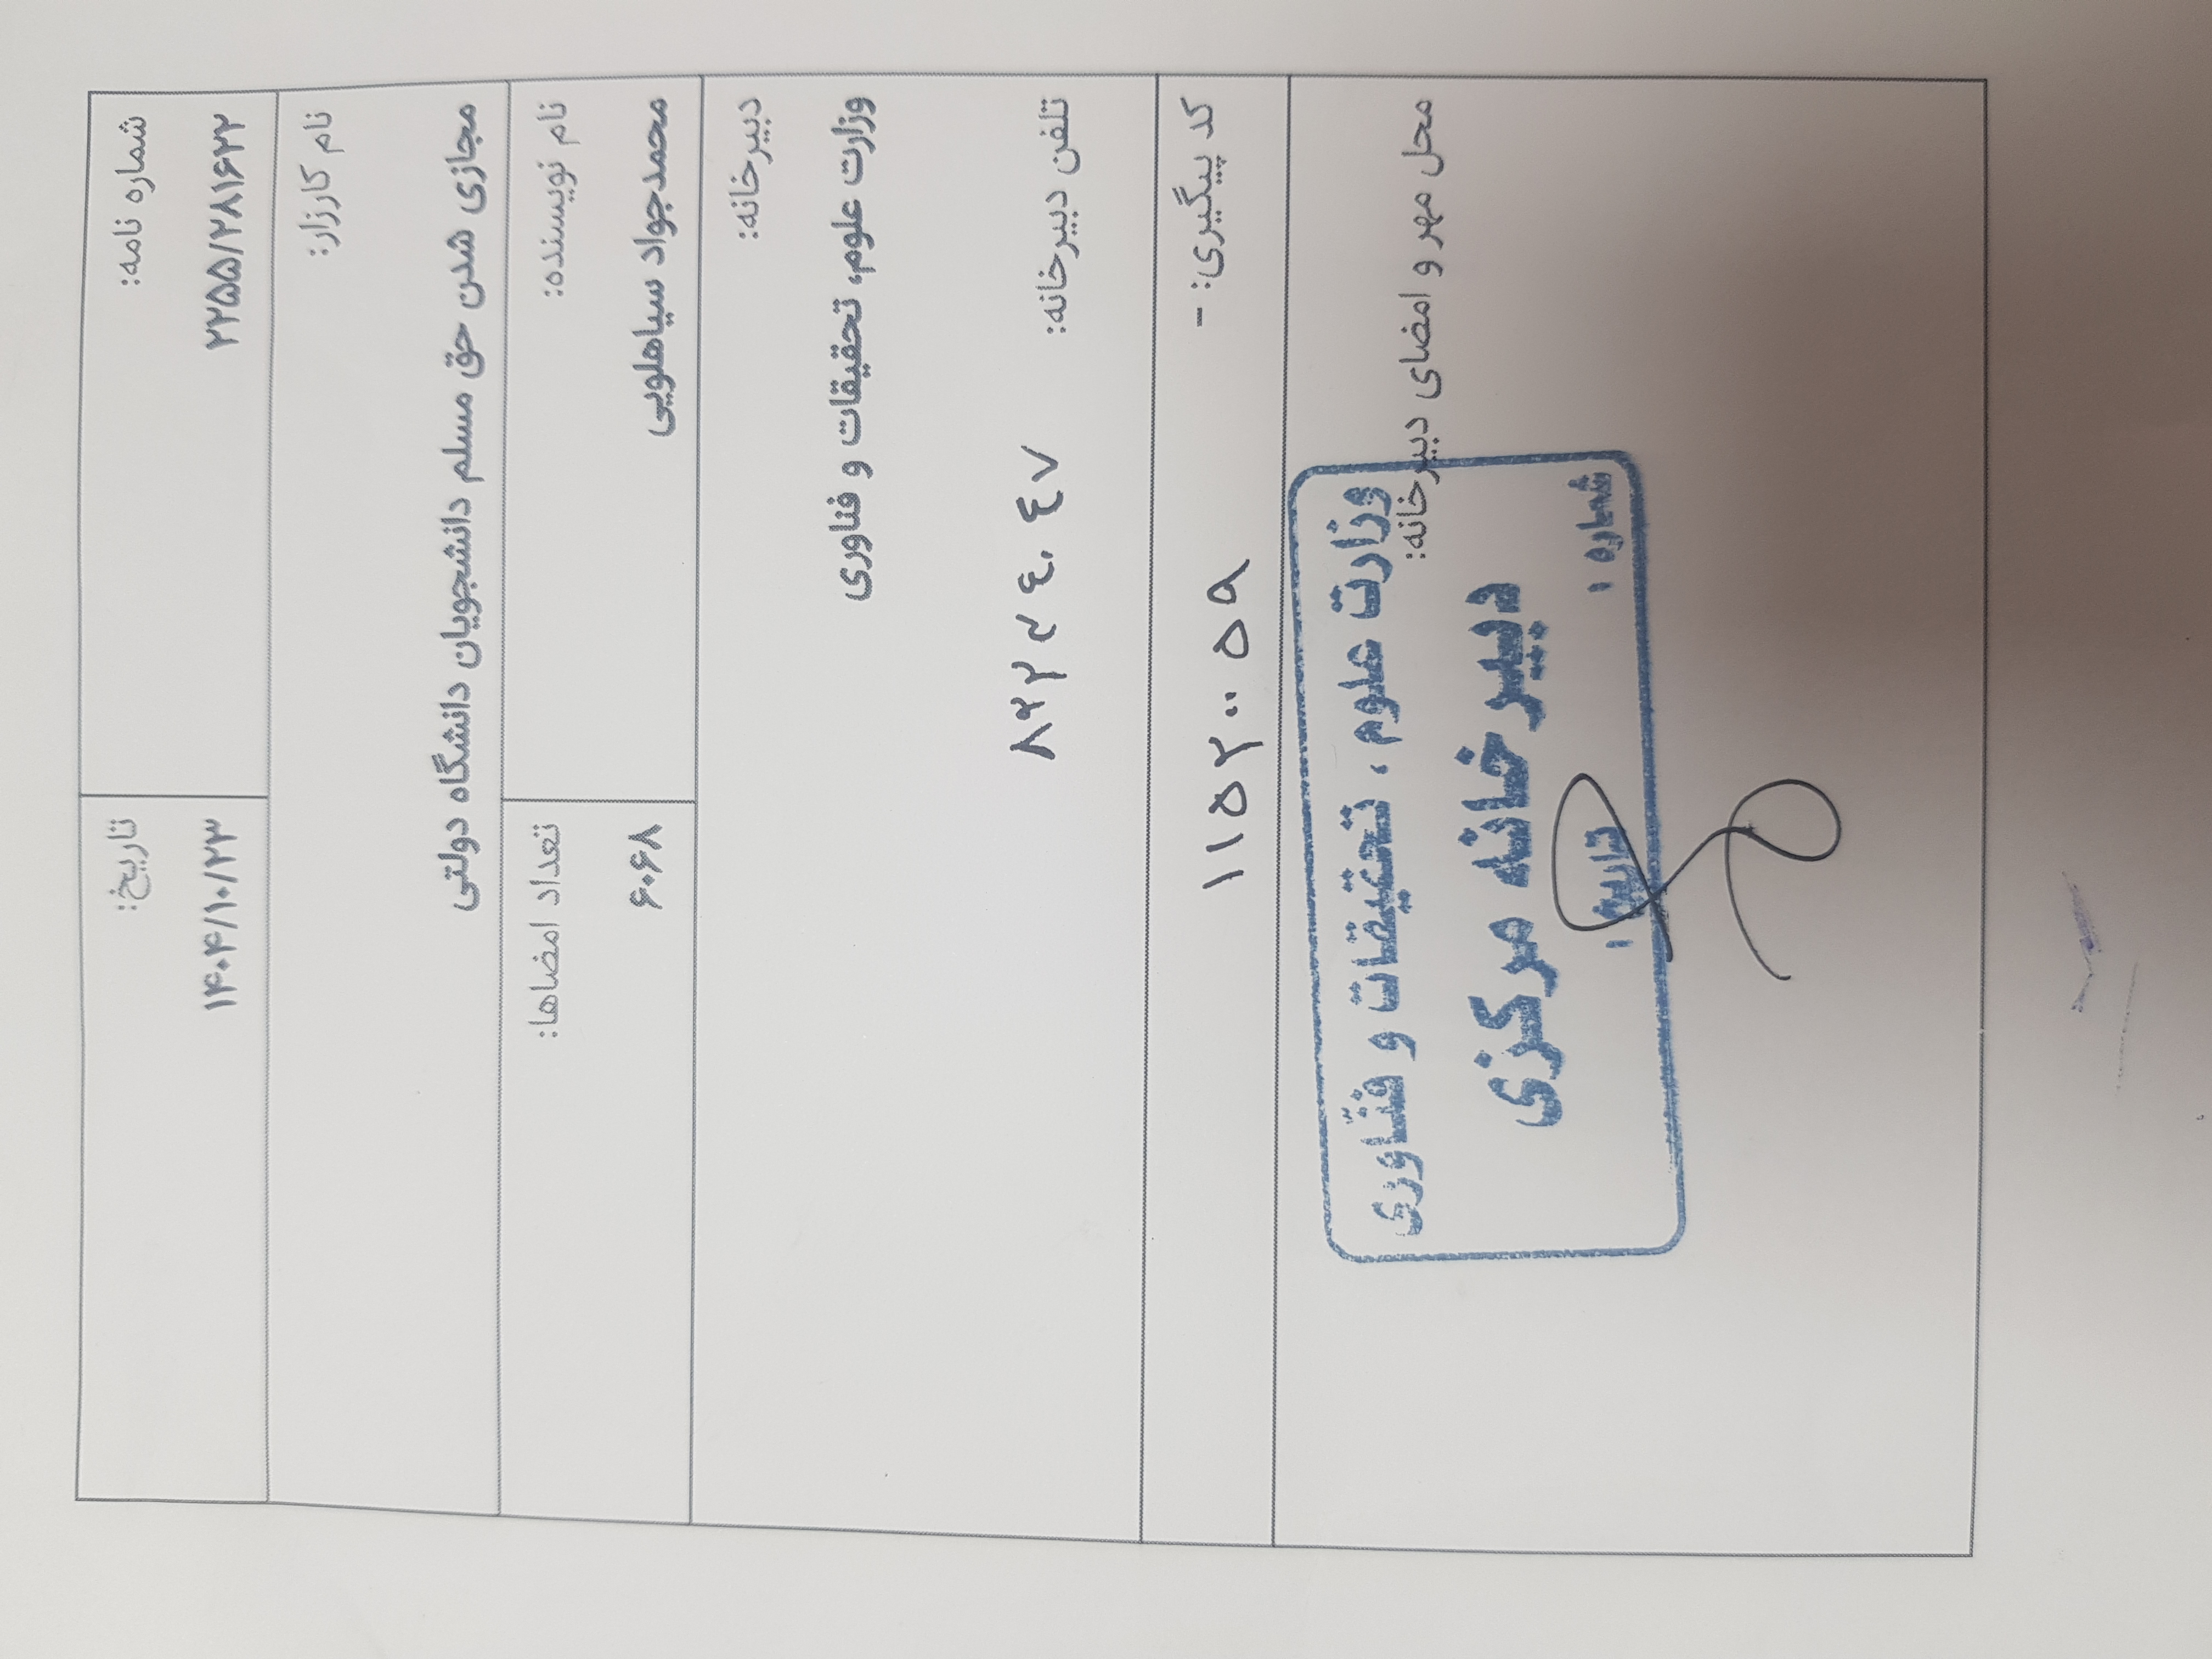 شماره نامه:
۲۲۵۵/۲۸۱۶۲۲
تاریخ:
۱۴۰۴/۱۰/۲۳
نام کارزار:
مجازی شدن حق مسلم دانشجویان دانشگاه دولتی
نام نویسنده:
محمدجواد سیاهلویی
تعداد امضاها:
۶۰۶۸
دبیرخانه:
وزارت علوم، تحقیقات و فناوری
تلفن دبیرخانه:
کد پیگیری: - ۱۱۵۲۰۰۵۹
محل مهر و امضای دبیرخانه:
وزارت علوم ، تحقیقات و فنّاوری
دبیرخانه مرکزی
شماره : تاریخ :